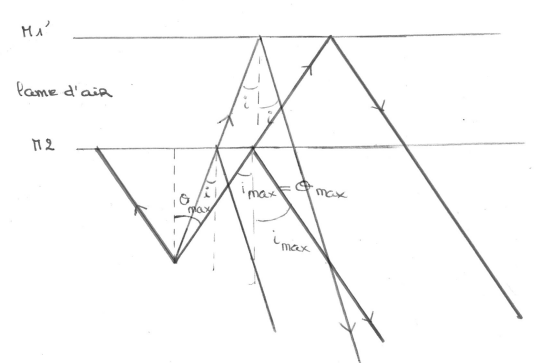 M1'
i i
lame d'air
M2
θmax i imax = θmax
imax